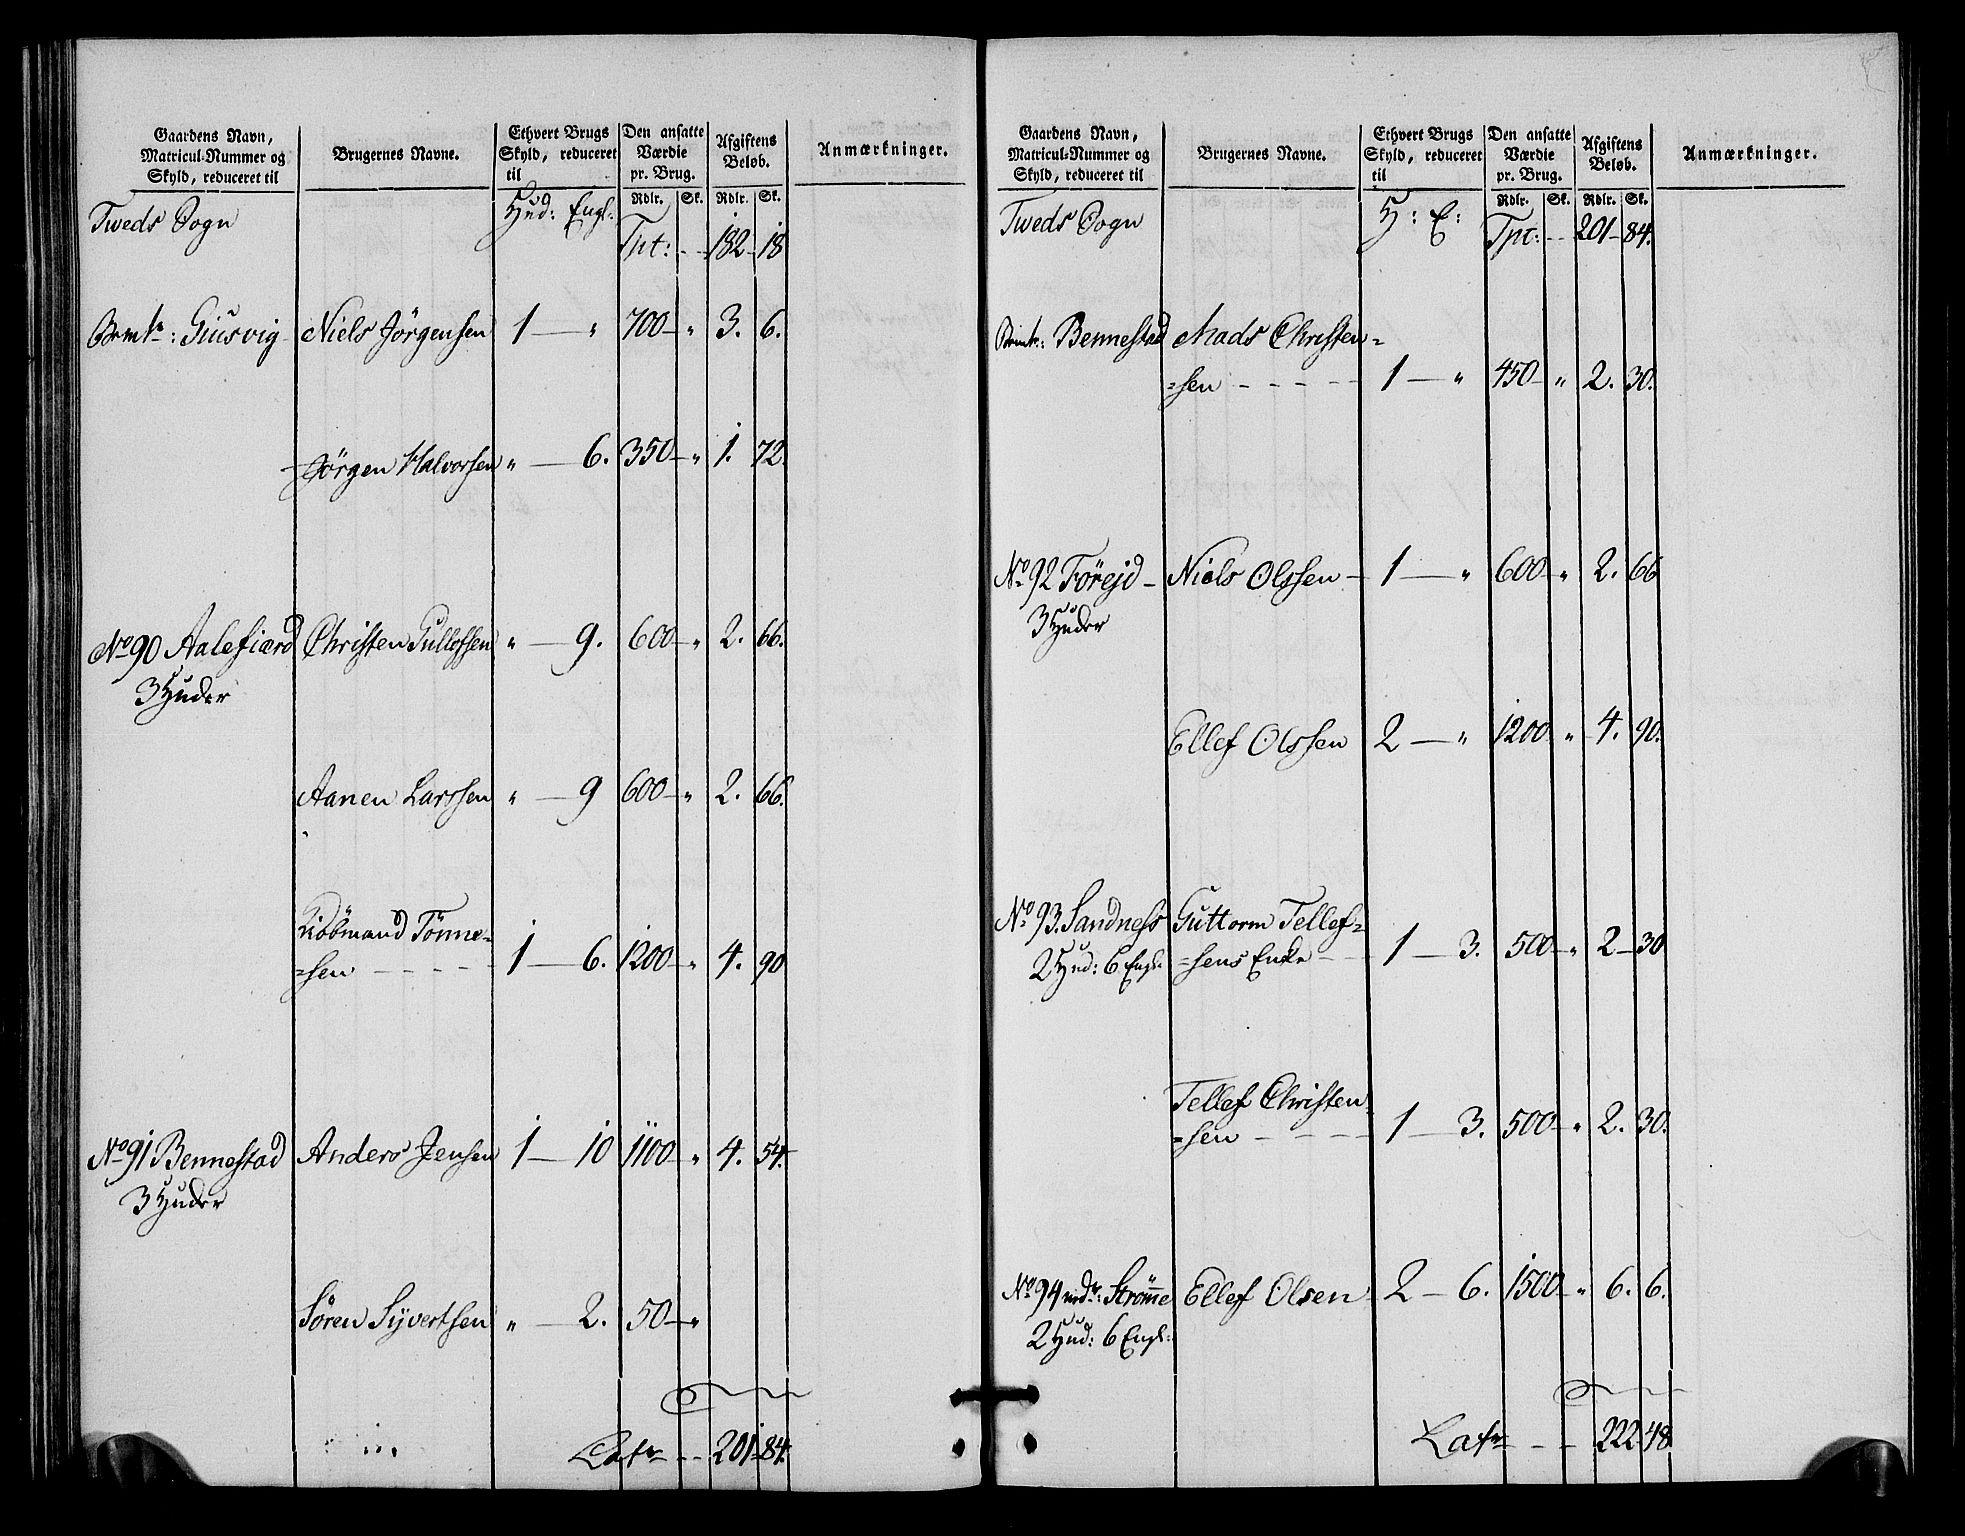 Gaardens Navn, Matricul-Nummer og Skyld, reduceret til | Brugernes Navne. | Ethvert Brugs Skyld, reduceret til | Den ansatte Værdie pr. Brug. | Afgiftens Beløb. | Anmærkninger.
Rdlr. Sk. Rdlr. Sk.
Tweds Sogn Hud: Engl:
Tpt: -- 182-18
Bemte: Giusvig Niels Jörgensen 1 — " 700 — " 3. 6.
Jörgen Halvorsen " — 6. 350 — " 1. 72.
No 90 Aalefiærd Christen Gullofsen " — 9. 600 — " 2. 66.
3 Huder
Aanen Larssen " — 9 600 — " 2. 66.
Kiöbmand Tönne=
=sen - - - - - 1 — 6. 1200 — " 4. 90
No 91 Bennestad Anders Jensen 1 — 10 1100 — " 4. 54.
3 Huder
Sören Syvertsen " — 2. 50 — "
Latr -- 201-84.
Gaardens Navn, Matricul-Nummer og Skyld, reduceret til | Brugernes Navne. | Ethvert Brugs Skyld, reduceret til | Den ansatte Værdie pr. Brug. | Afgiftens Beløb. | Anmærkninger.
Rdlr. Sk. Rdlr. Sk.
Tweds Sogn H: E:
Tpt: -- 201-84.
Bemte: Bennestad Mads Christen=
=sen - - - - - 1 — " 450 — " 2. 30.
No 92 Förejd — Niels Olssen — 1 — " 600 — " 2. 66
3 Huder
Ellef Olssen 2 — " 1200 " 4. 90.
No 93. Sandness Guttorm Tellef=
2 Hud: 6 Engl. =sens Enke - - 1 — 3. 500 — " 2 — 30
Tellef Christen=
=sen - - - - - 1 — 3. 500 — " 2. 30.
No 94 nedr: Strömme Ellef Olsen 2 — 6. 1500 — " 6. 6.
2 Hud: 6 Engl:
Latr - - - 222 48